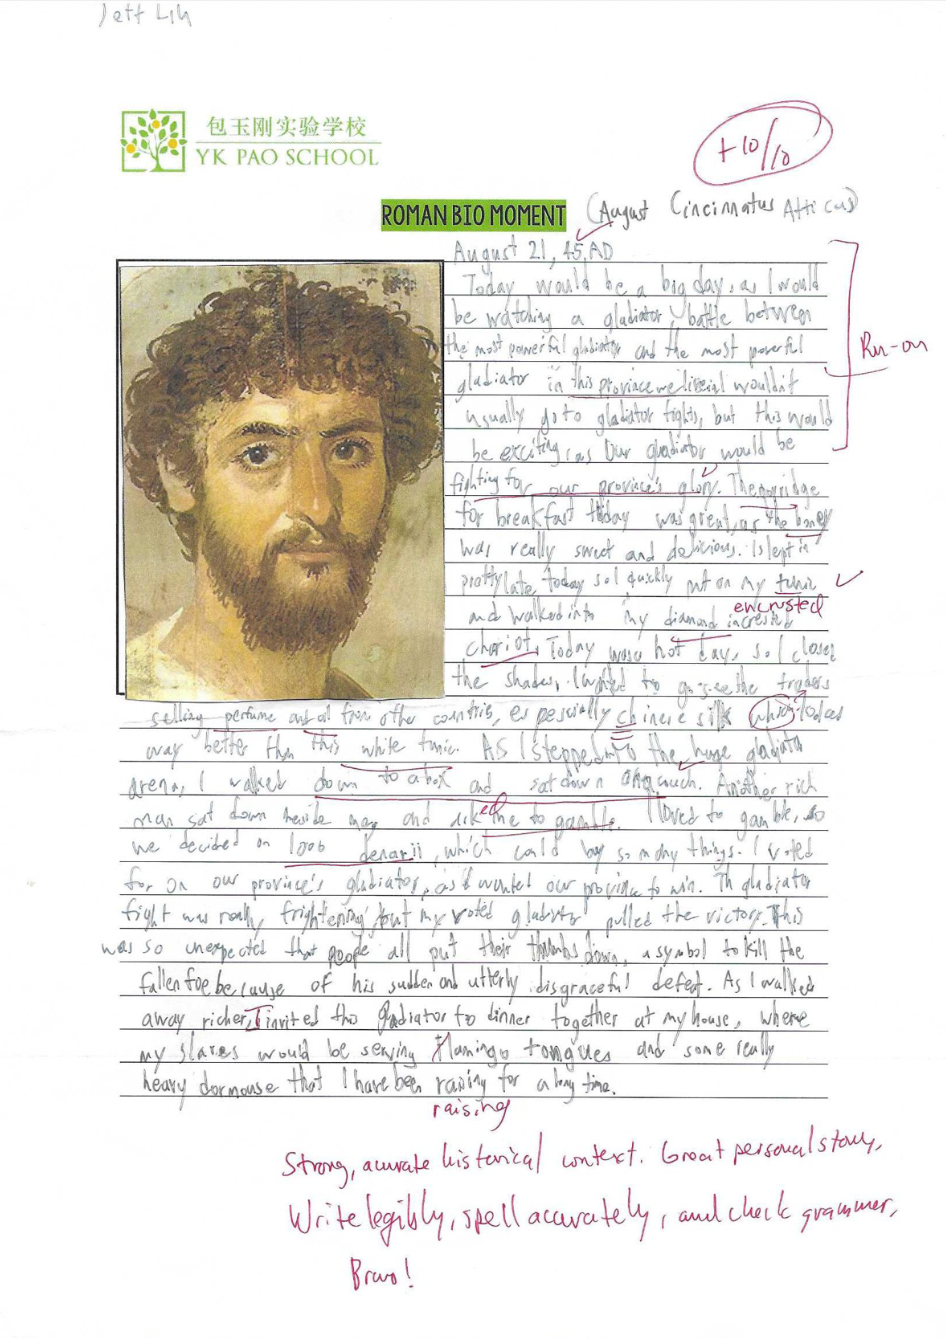 Jeff
包玉刚实验学校
YK PAO SCHOOL
+10/10
ROMAN BIO MOMENT (August Cincinnatus Atticus)
August 21, 45 AD
Today would be a big day, as I would
be watching a gladiator battle between
the most powerful gladiator and the most powerful
Run-on
gladiator in this province wouldn't
usually go to gladiator fights, but this would
be exciting, as Our gladiator would be
fighting for our province's glory. The porridge
for breakfast today was great, as the honey
was really sweet and delicious. I slept in
pretty late today so I quickly put on my tunic
encrusted
and walked into my diamond incrested
chariot. Today was a hot day, so I closed
the shades. I wanted to go see the traders
selling perfume and oil from other countries, especially chinese silk which looked
way better than this white tunic. As I stepped into the huge gladiator
arena, I walked down to a box and sat down on a couch. Another rich
ed
man sat down beside and ask me to gamble. I loved to gamble, so
we decided on 1000 denarii, which could buy so many things. I voted
for on our province's gladiator, as I wanted our province to win. Th gladiator
fight was really frightening, but my voted gladiator pulled the victory. This
was so unexpected that people all put their thumbs down, a symbol to kill the
fallen foe because of his sudden and utterly disgraceful defeat. As I walked
away richer, I invited this gladiator to dinner together at my house, where
my slaves would be serving flamingo tongues and some really
heavy dormouse that I have been rasing for a long time.
raising
Strong, accurate historical context. Great personal story,
Write legibly, spell accurately, and check grammer,
Bravo!